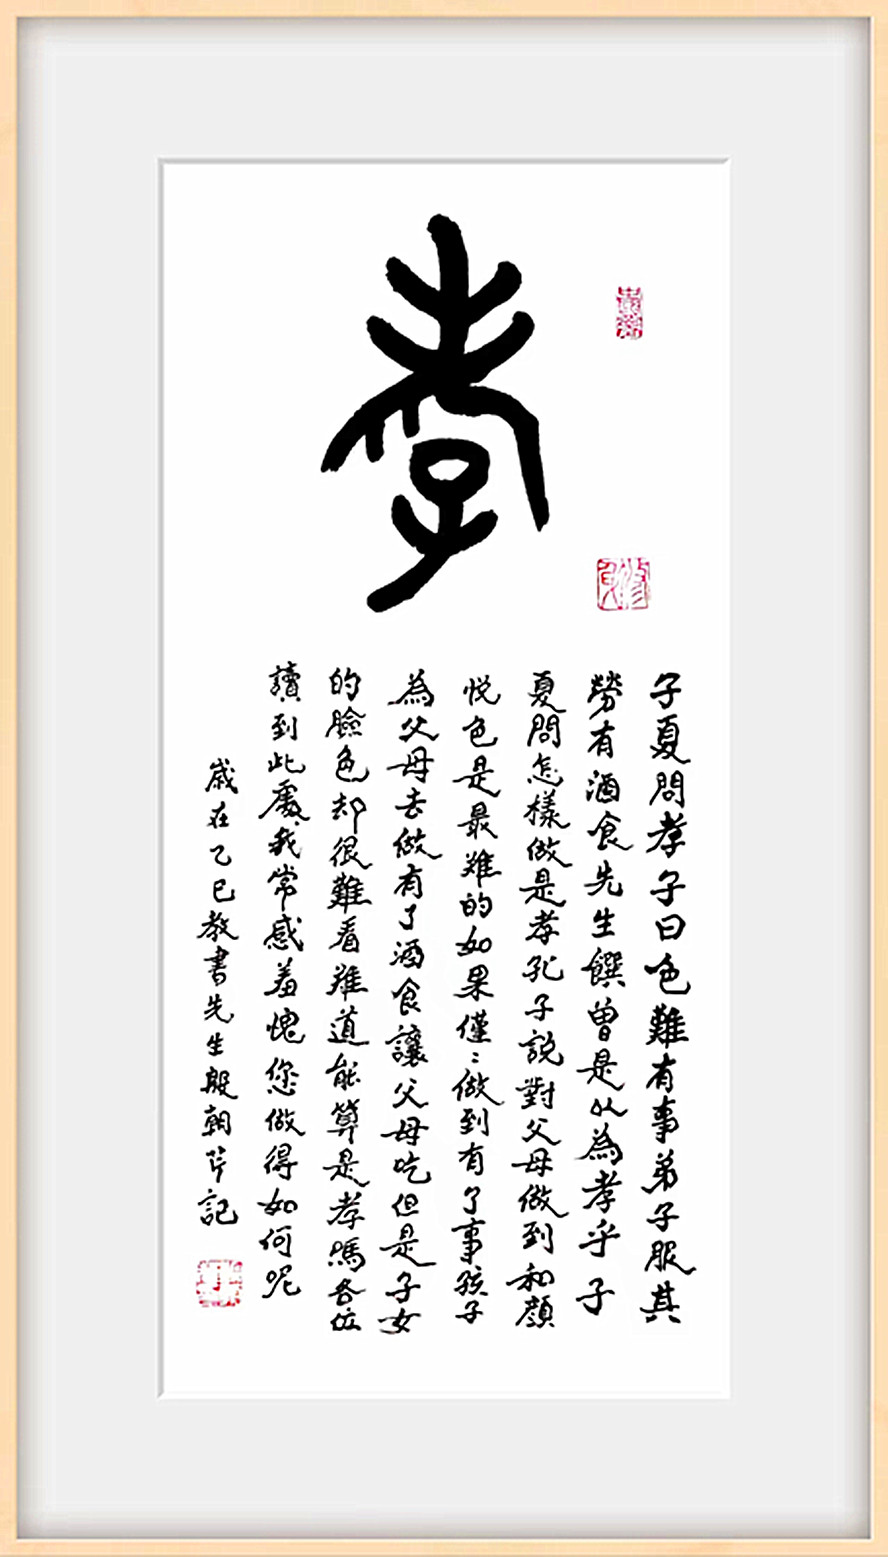 孝
子夏問孝子曰色難有事弟子服其
勞有酒食先生饌曾是以為孝乎子
夏問怎樣做是孝孔子説對父母做到和顔
悦色是最難的如果僅〻做到有了事孩子
為父母去做有了酒食讓父母吃但是子女
的臉色却很難看難道能算是孝嗎各位
讀到此處我常感羞愧您做得如何呢
歲在乙巳教書先生殷朝芹記